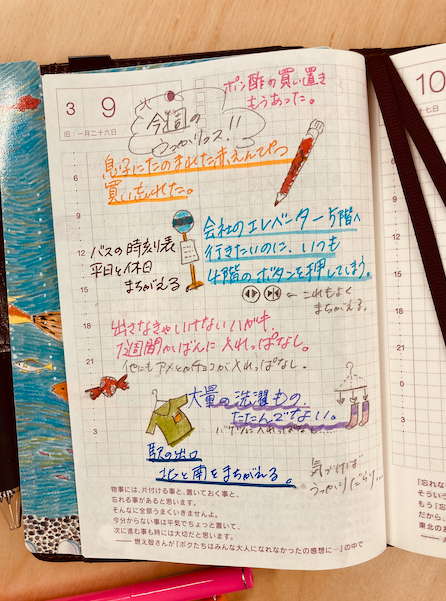 3 9 火
旧 一月二十六日
今週の
うっかりミス!!
ポン酢の買い置き
もうあった。
息子にたのまれた赤えんぴつ
買い忘れた。
バスの時刻表
平日と休日
まちがえる。
会社のエレベーター5階へ
行きたいのに、いつも
4階のボタンを押してしまう。
←これもよく
まちがえる。
出さなきゃいけないハガキ、
1週間かばんに入れっぱなし。
他にもアメとかチョコが入れっぱなし。
大量の洗濯もの、
たたんでない。
駅の出口
北と南をまちがえる。
気づけば
うっかりだらけ…
6
9
12
15
18
21
3
物事には、片付ける事と、置いておく事と、
忘れる事があると思います。
そんなに全部うまくいきませんよ。
今分からない事は平気でちょっと置いて、
次に進む事も時には大切だと思います。
――燃え殻さんが『ボクたちはみんな大人になれなかったの感想に…』の中で
10
十七日
6
9
12
15
18
21
0
3
「忘れな
そういう
もう「忘
だから、
東北のあ